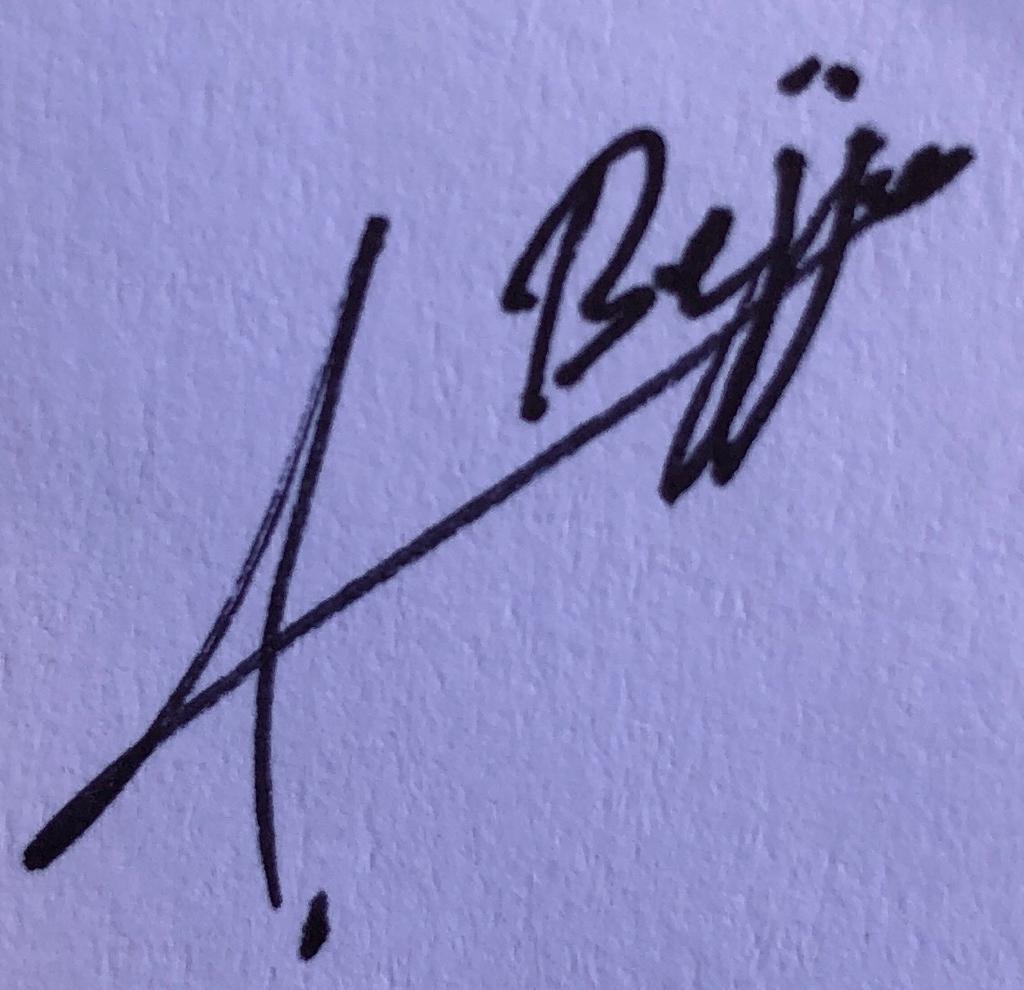 A. Bejj